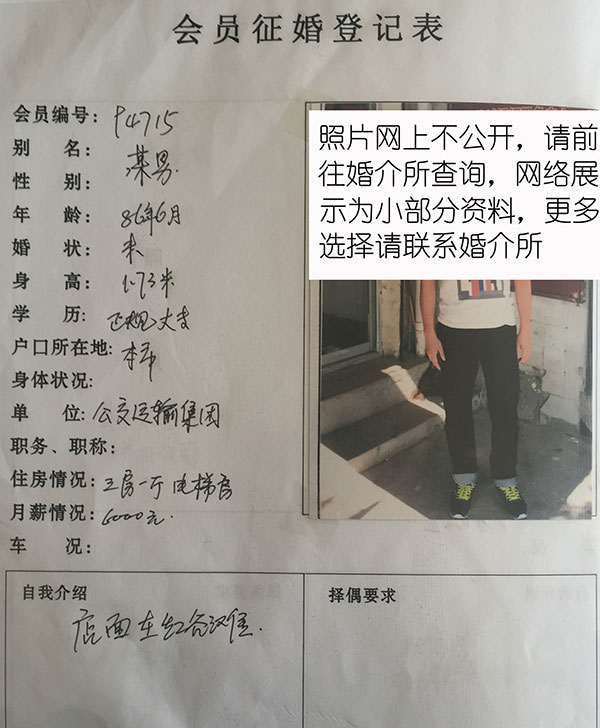 会员征婚登记表
会员编号: P4715
别 名: 某男
性 别:
年 龄: 86年6月
婚 状: 未
身 高: 1.73米
学 历: 正规大专
户口所在地: 本市
身体状况:
单 位: 公交运输集团
职务、职称:
住房情况: 三房一厅 电梯房
月薪情况: 6000元.
车 况:
照片网上不公开，请前
往婚介所查询，网络展
示为小部分资料，更多
选择请联系婚介所
自我介绍
店面 在红谷滩住.
择偶要求